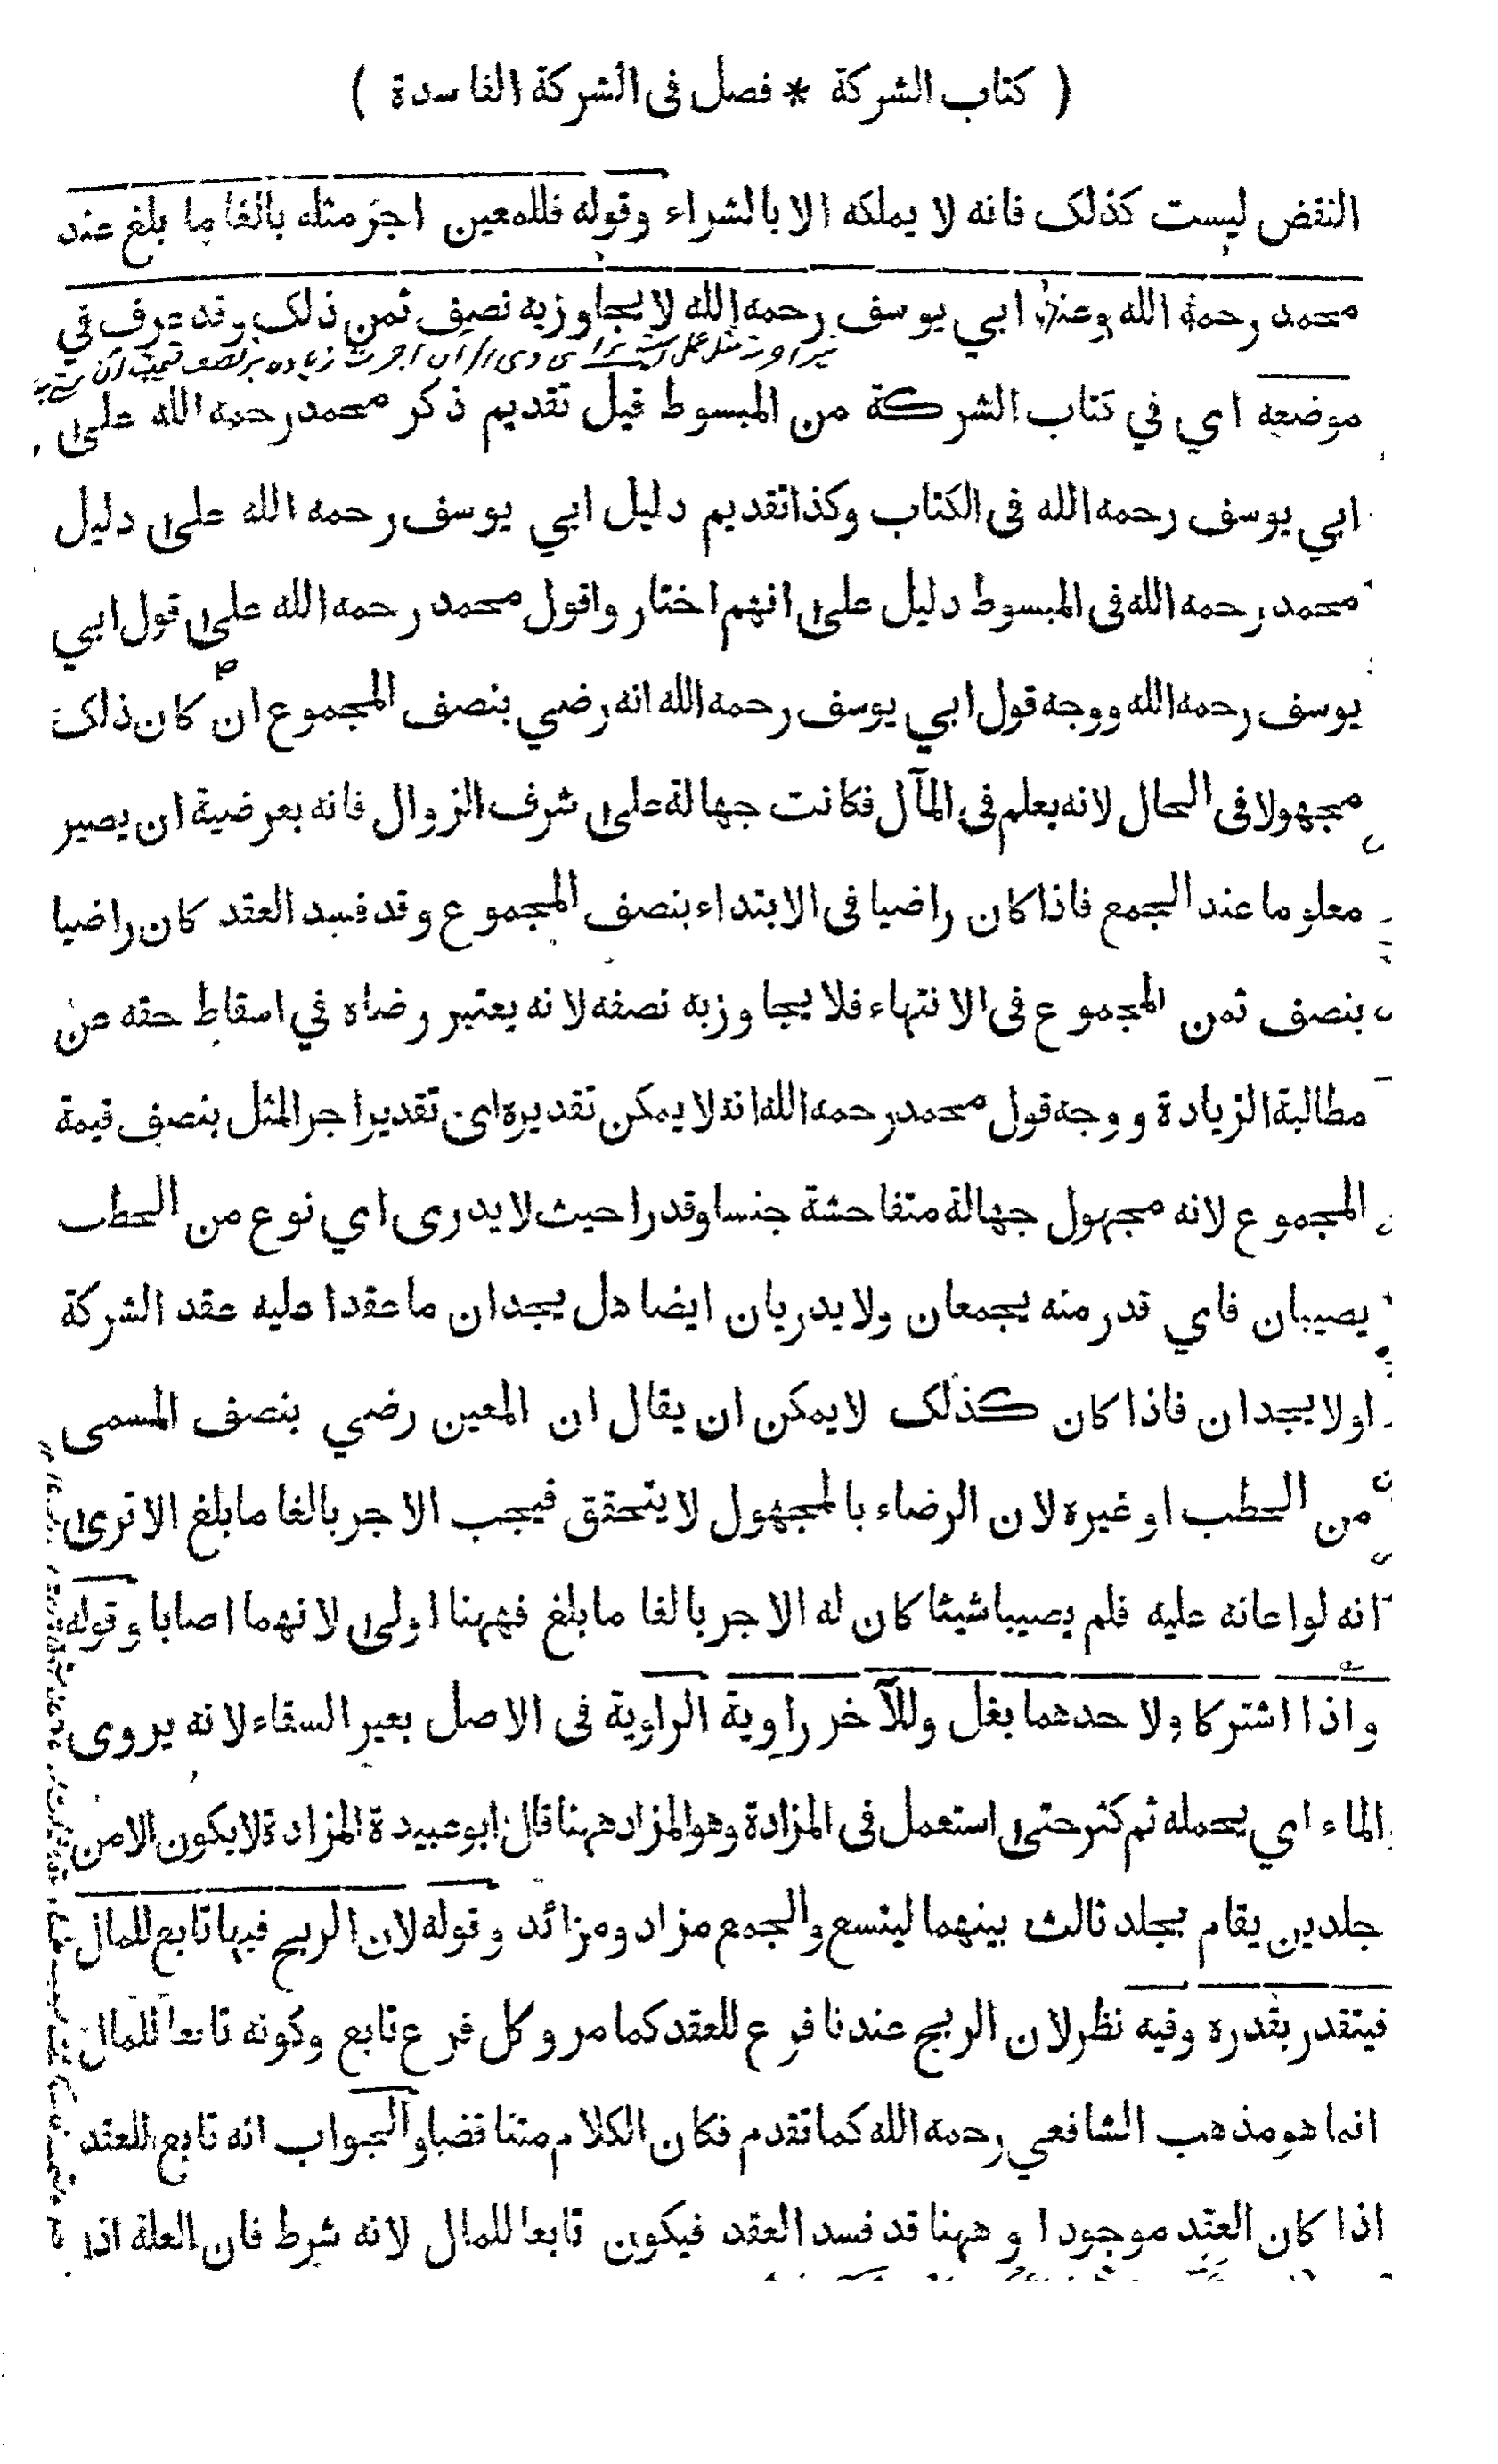 ( كتاب الشركة * فصل فى الشركة الفاسدة )
النقض ليست كذلك فانه لا يملكه الا بالشراء وقوله فللمعين اجر مثله بالغا ما بلغ عند
محمد رحمه الله وعند ابي يوسف رحمه الله لا يجاوز به نصف ثمن ذلك وقد عرف في
موضعه اي في كتاب الشركة من المبسوط قيل تقديم ذكر محمد رحمه الله على
ابي يوسف رحمه الله فى الكتاب وكذا تقديم دليل ابي يوسف رحمه الله على دليل
محمد رحمه الله فى المبسوط دليل على انهم اختاروا قول محمد رحمه الله على قول ابي
يوسف رحمه الله ووجه قول ابي يوسف رحمه الله انه رضي بنصف المجموع ان كان ذلك
مجهولا فى الحال لانه يعلم فى المآل فكانت جهالة على شرف الزوال فانه بعرضية ان يصير
معلوما عند الجمع فاذا كان راضيا فى الابتداء بنصف المجموع وقد فسد العقد كان راضيا
بنصف ثمن المجموع فى الانتهاء فلا يجاوز به نصفه لانه يعتبر رضاه في اسقاط حقه عن
مطالبة الزيادة ووجه قول محمد رحمه الله انه لا يمكن تقديره اي تقدير اجر المثل بنصف قيمة
المجموع لانه مجهول جهالة متفاحشة جنسا وقدرا حيث لا يدرى اي نوع من الحطب
يصيبان فاي قدر منه يجمعان ولا يدريان ايضا هل يجدان ما عقدا عليه عقد الشركة
او لا يجدان فاذا كان كذلك لا يمكن ان يقال ان المعين رضي بنصف المسمى
من الحطب او غيره لان الرضاء بالمجهول لا يتحقق فيجب الاجر بالغا ما بلغ الا ترى
انه لو اعانه عليه فلم يصيبا شيئا كان له الاجر بالغا ما بلغ فههنا اولى لانهما اصابا وقوله
واذا اشتركا ولاحدهما بغل وللآخر راوية الراوية فى الاصل بعير السقاء لانه يروى
الماء اي يحمله ثم كثر حتى استعمل فى المزادة وهو المراد ههنا قال ابو عبيدة المزادة لا يكون الا من
جلدين يقام بجلد ثالث بينهما ليتسع والجمع مزاد ومزائد وقوله لان الربح فيها تابع للمال
فيتقدر بقدره وفيه نظر لان الربح عندنا فرع للعقد كما مر وكل فرع تابع وكونه تابعا للمال
انما هو مذهب الشافعي رحمه الله كما تقدم فكان الكلام متناقضا والجواب انه تابع للعقد
اذا كان العقد موجودا وههنا قد فسد العقد فيكون تابعا للمال لانه شرط فان العلة اذا